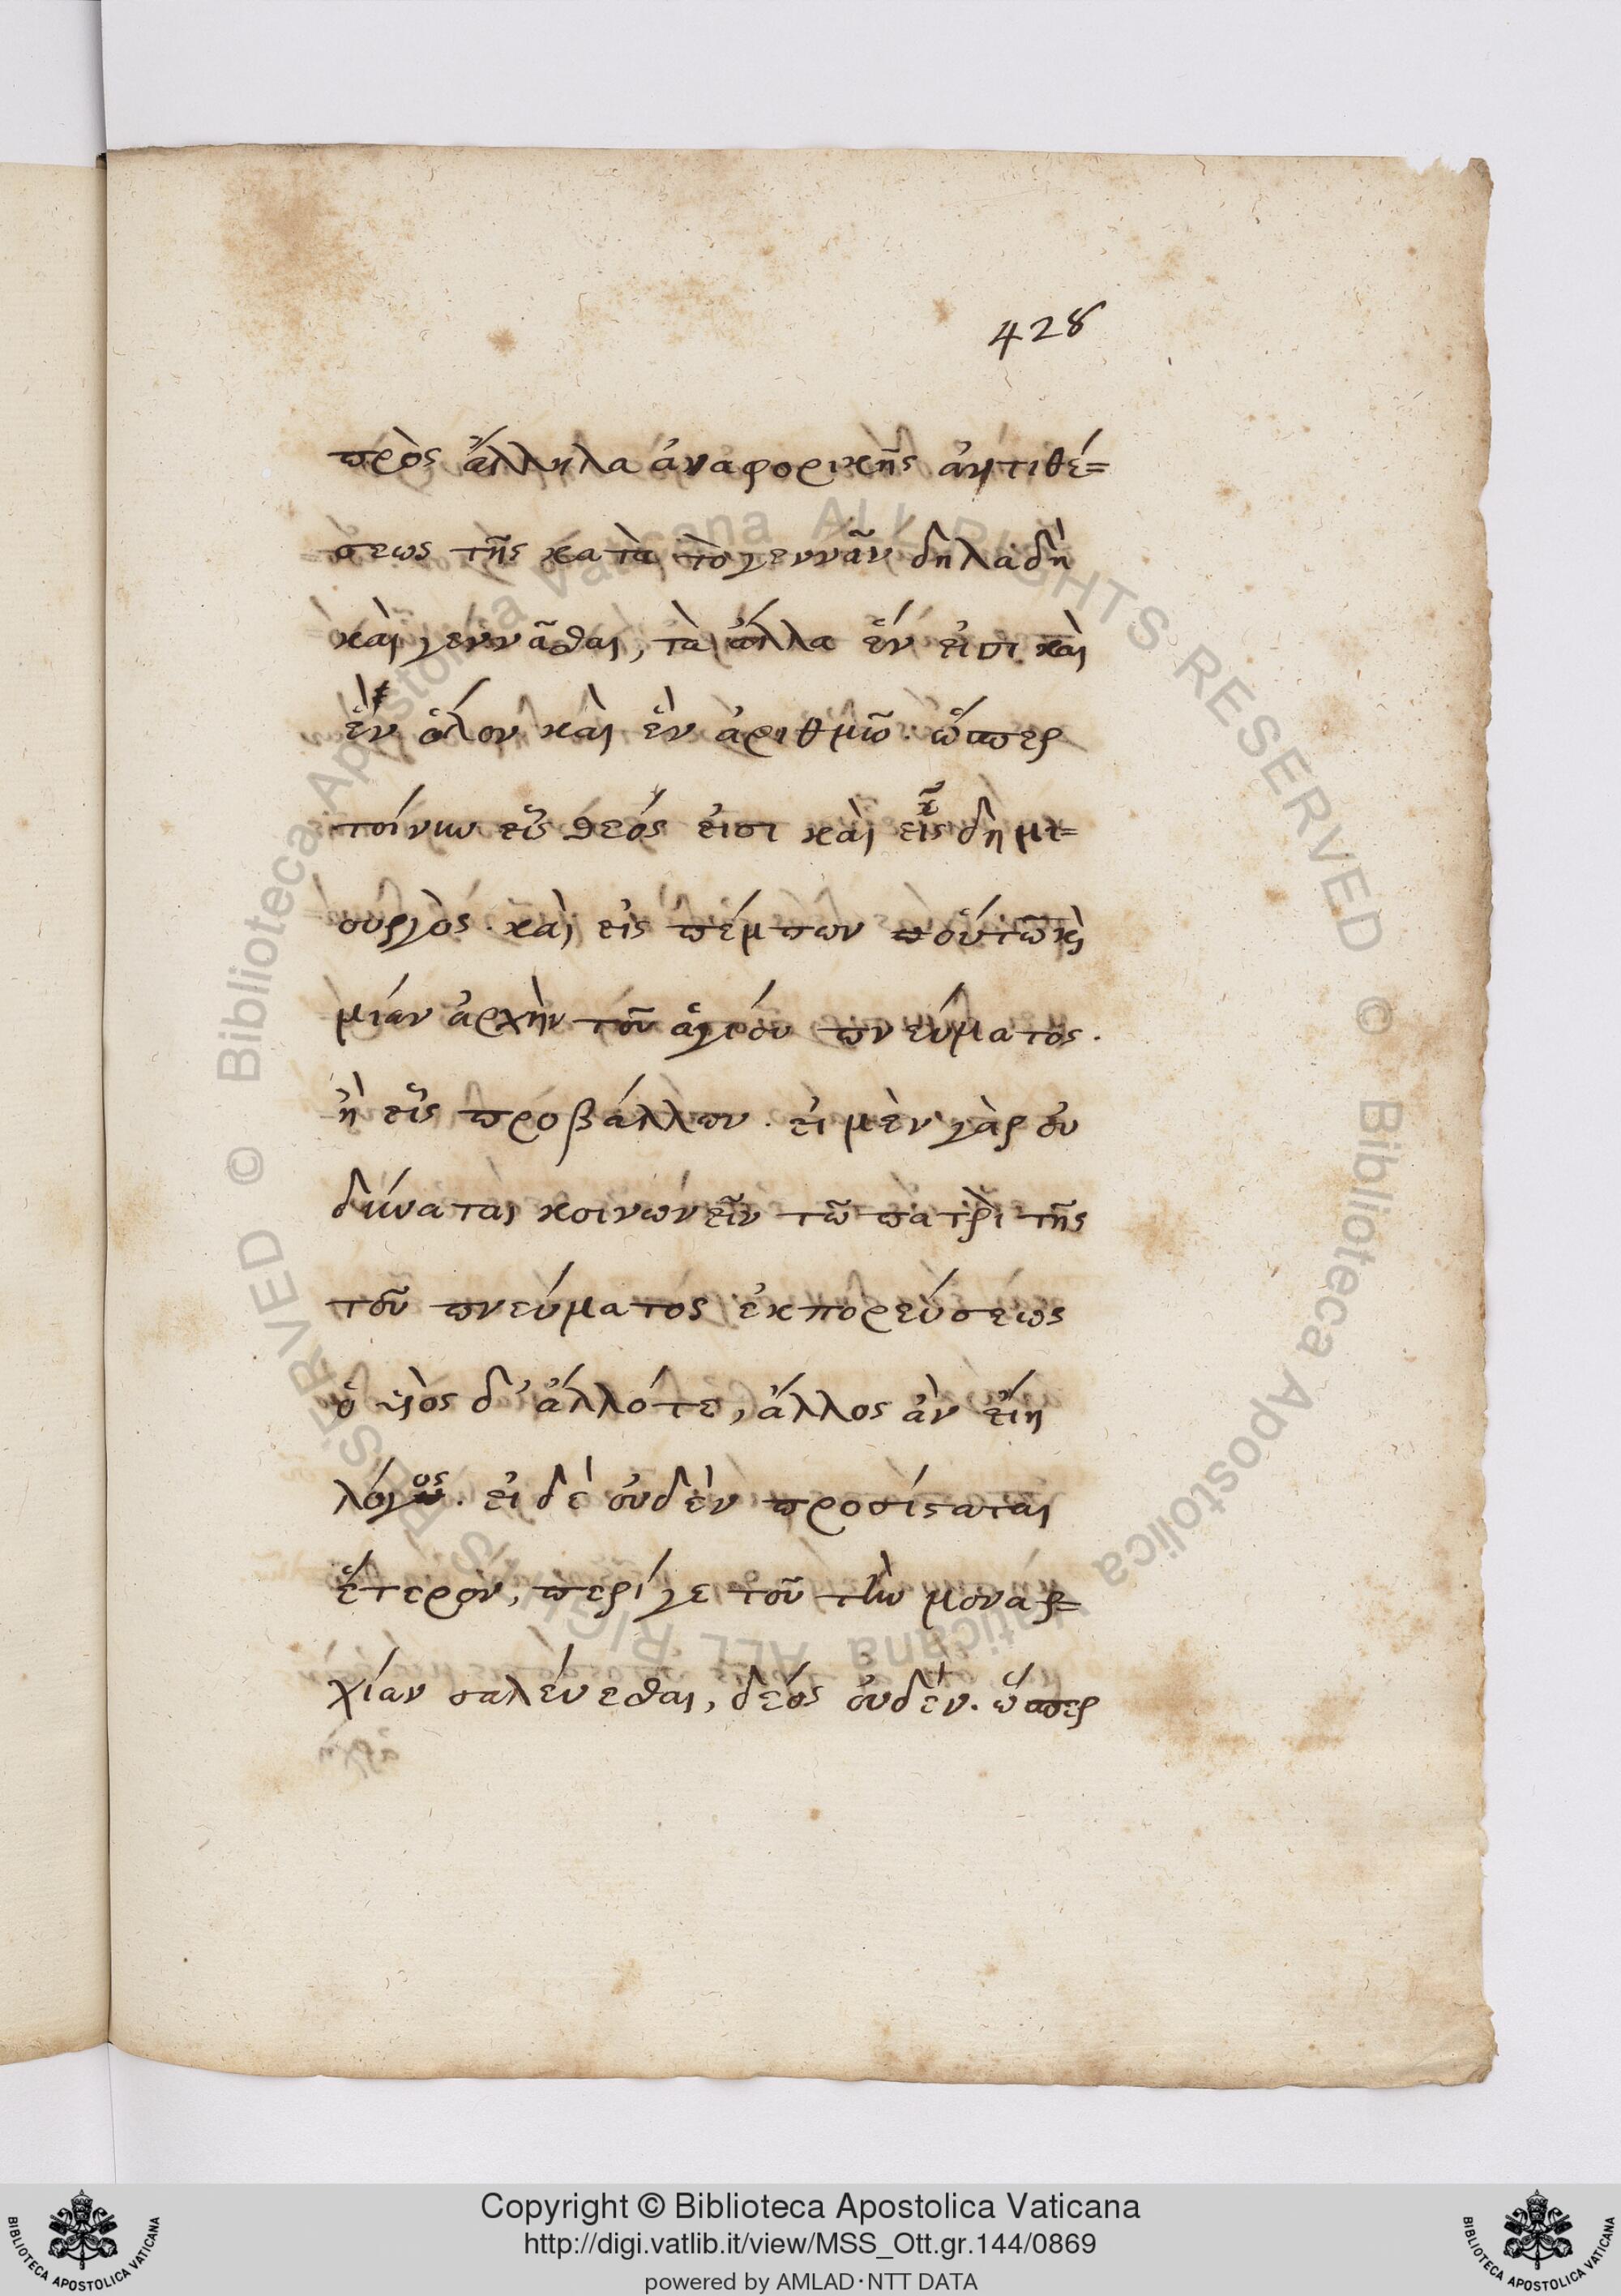 428
πρὸς ἄλληλα ἀναφορικῆς ἀντιθέ=
σεως τῆς κατὰ τὸ γεννᾶν δηλαδὴ
καὶ γεννᾶσθαι, τὰ ἄλλα ἕν εἰσι καὶ
ἓν ὅλον καὶ ἓν ἀριθμῶ. ὥσπερ
τοίνυν εἷς θεός εἰσι καὶ εἷς δημι=
ουργὸς. καὶ εἷς πέμπων οὕτω κ̀
μίαν ἀρχὴν τοῦ ἁγίου πνεύματος.
ἢ εἷς προβάλλων. εἰ μὲν γὰρ οὐ
δύναται κοινωνεῖν τῶ πατρὶ τῆς
τοῦ πνεύματος ἐκπορεύσεως
ὁ υἱὸς δ' ἄλλοτε, ἄλλος ἂν εἴη
λόγος. εἰ δὲ οὐδὲν προσίσταται
ἕτερον, περί γε τοῦ τὴν μοναρ=
χίαν σαλεύεσθαι, δέος οὐδέν. ὥσπερ
Copyright © Biblioteca Apostolica Vaticana
http://digi.vatlib.it/view/MSS_Ott.gr.144/0869
powered by AMLAD·NTT DATA
BIBLIOTECA APOSTOLICA VATICANA
BIBLIOTECA APOSTOLICA VATICANA
© Biblioteca Apostolica Vaticana ALL RIGHTS RESERVED
© Biblioteca Apostolica Vaticana ALL RIGHTS RESERVED